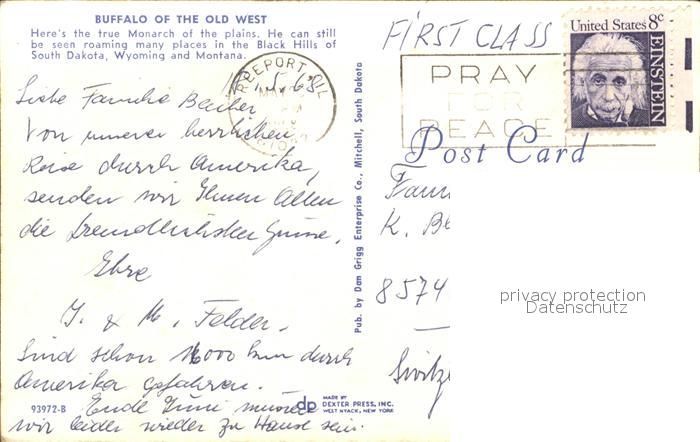 BUFFALO OF THE OLD WEST
Here's the true Monarch of the plains. He can still
be seen roaming many places in the Black Hills of
South Dakota, Wyoming and Montana.
FIRST CLASS
United States 8c
EINSTEIN
FREEPORT, IL
PRAY
FOR
PEACE
Post Card
Liebe Familie
Von unserer herrlichen
Reise durch Amerika,
senden wir Ihnen Allen
die freundlichsten Grüsse.
Ihre
J. & M. Felder.
Sind schon 16000 km durch
Amerika gefahren.
Ende Juni müssen
wir leider wieder zu Hause sein.
Pub. by Dan Grigg Enterprise Co., Mitchell, South Dakota
Fam
K. Be
8574
privacy protection
Datenschutz
93972-B
dp
MADE BY
DEXTER PRESS, INC.
WEST NYACK, NEW YORK